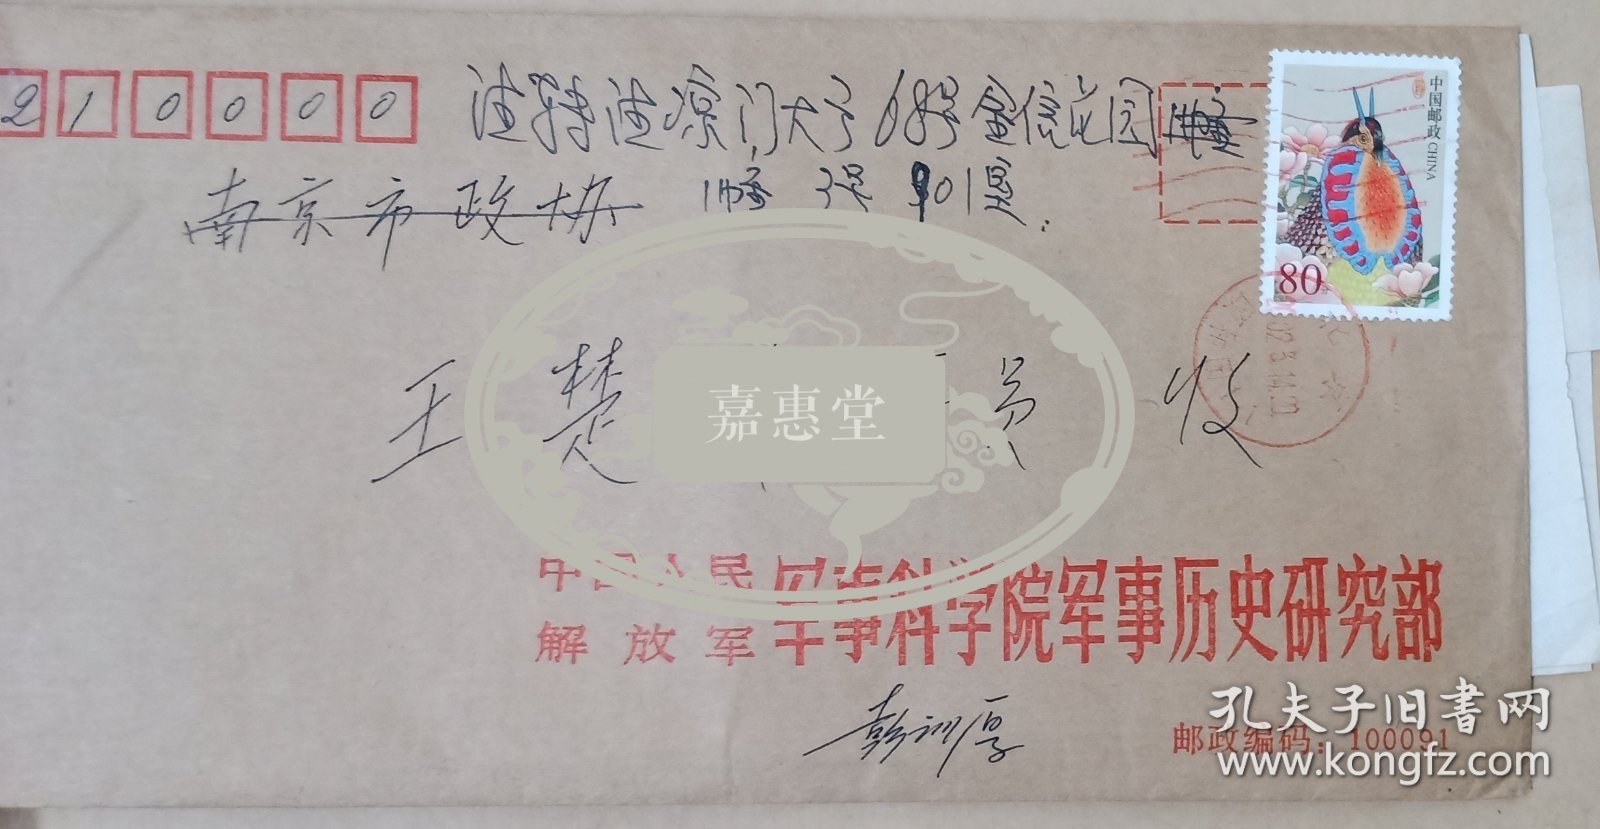 210000
请转 68号金信花园
南京市政协 901室.
中国邮政 CHINA
80分
王楚 员 收
嘉惠堂
中国人民解放军 军事科学院军事历史研究部
彭训厚
邮政编码：100091
孔夫子旧书网
www.kongfz.com